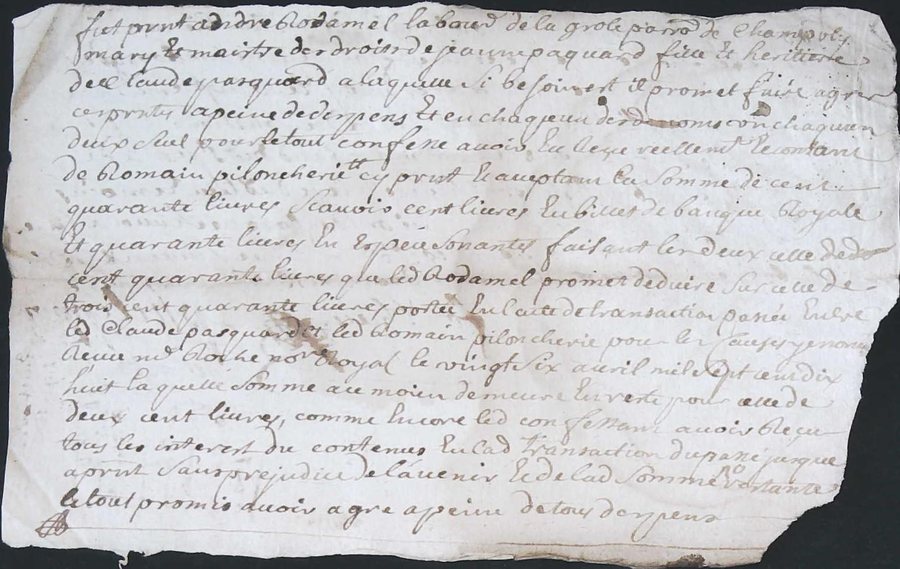 fut pnt andre Rodamel labourd de la grole parrd de Champoly
mary et maistre des droits de jeanne paquard fille et heritiere
de Claude pasquard a laquelle si besoin est il promet faire agreer
ces pntes a peine de despens et en chaqueun des noms cois chaqueun
deux seul pour le tout confesse avoir Eu Reçu reellemt contant
de Romain piloncherie cy pnt et aceptant la somme de cent
quarante livres scavoir cent livres En billet de banque Royale
Et quarante livres En Espece sonantes faisant les deux
cent quarante livres que led Rodamel promet deduire sur celle de
trois cent quarante livres portee En lacte de transaction passee Entre
led Claude pasquard et led Romain piloncherie pour les causes y
Recue me Roche nore Royal le vingt six avril mil sept cen dix
huit la quelle somme au moien demeure En reste pour celle de
deux cent livres, comme Encore led confessant avoir Reçu
tous les interest du contenus En lad transaction du passe jusque
a pnt sans prejudice de lavenir et de lad somme Restante
le tout promis avoir agre a peine de tous despens